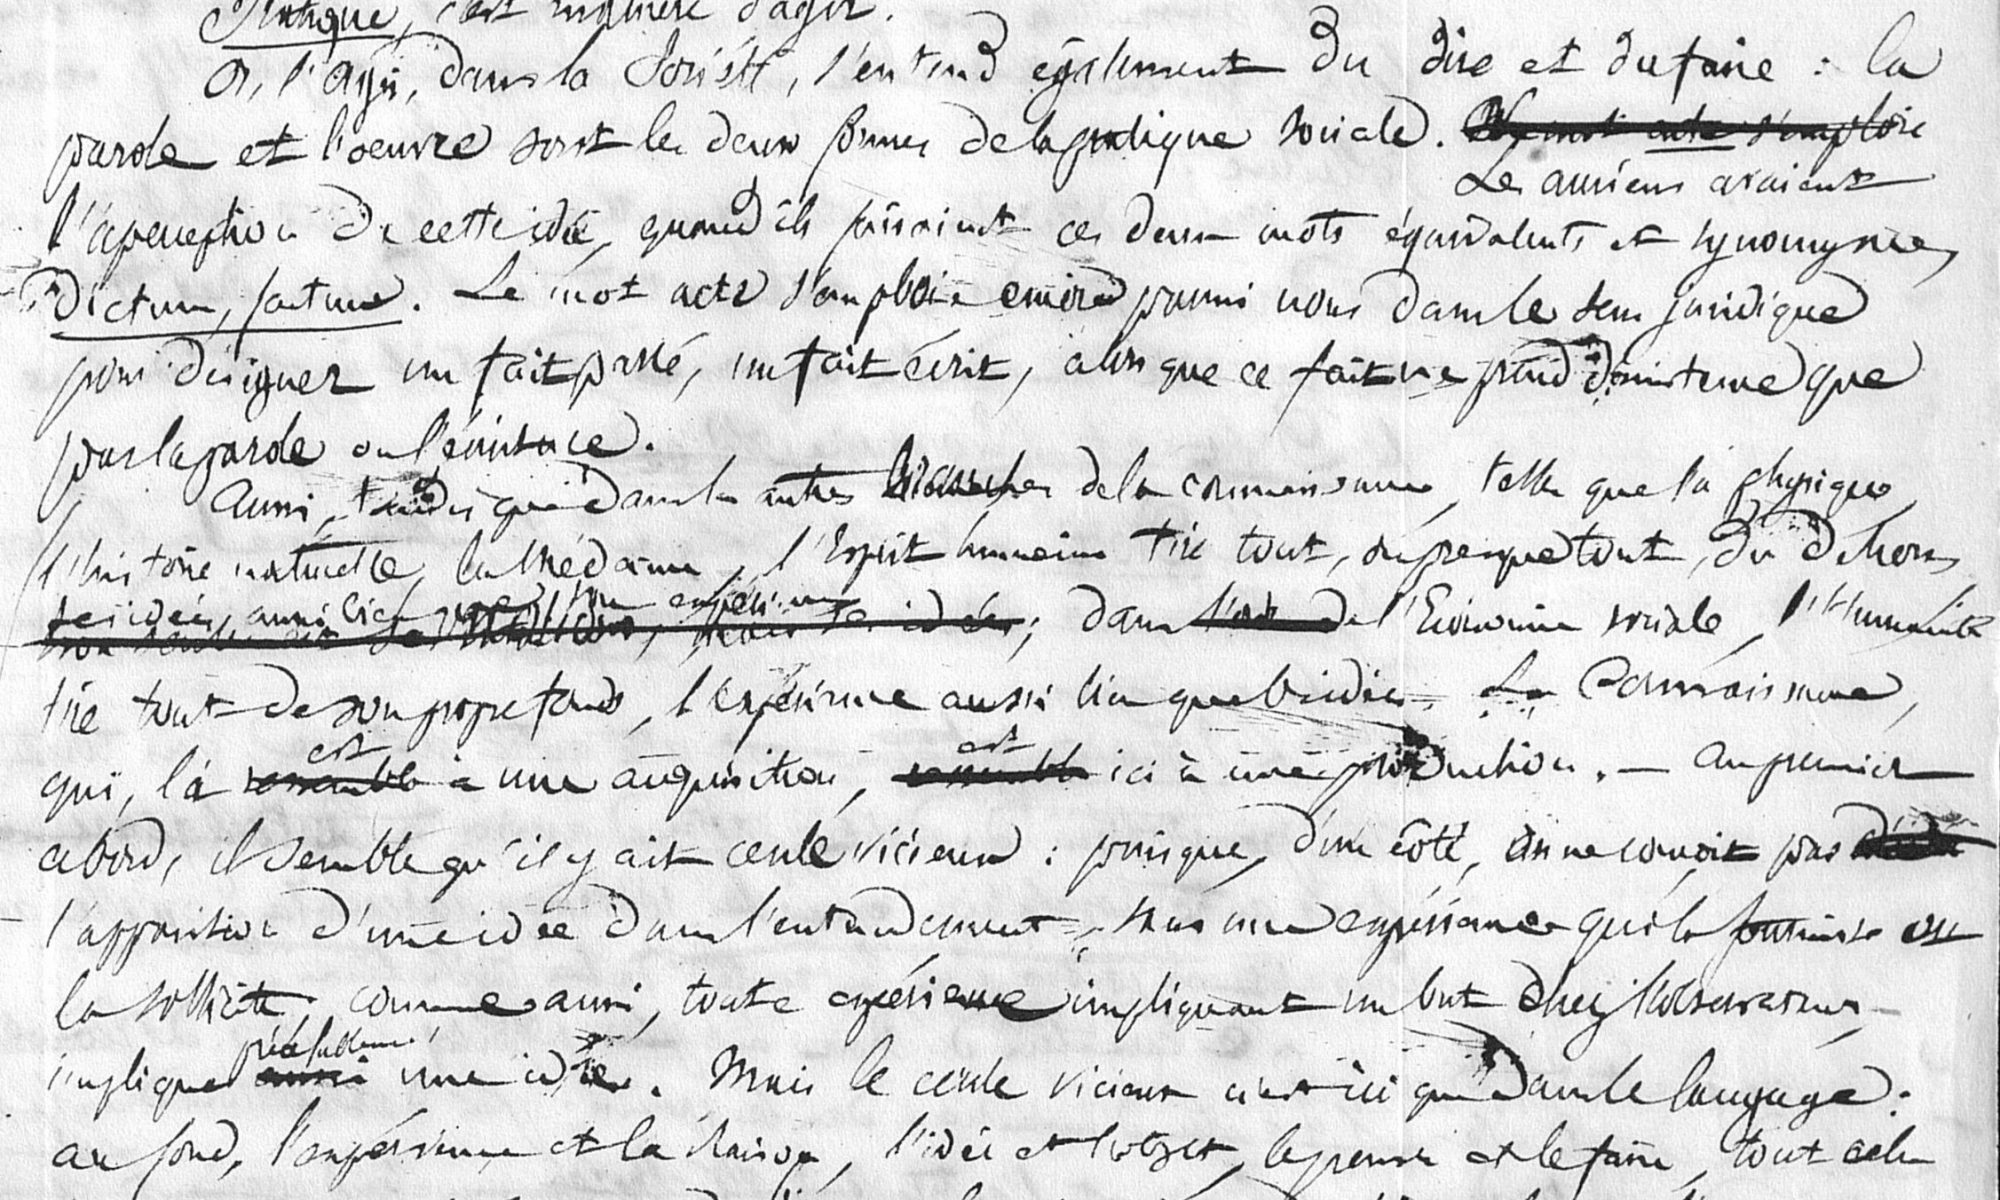 Pratique, c'est manière d'agir.
Or, l'agir, dans la Société, s'entend également du dire et du faire : la
parole et l'oeuvre sont les deux formes de la pratique sociale. Le mot acte s'emploie
Les anciens avaient
l'aperception de cette idée, quand ils faisaient ces deux mots équivalents et synonymes,
Dictum, factum. Le mot acte s'emploie encore parmi nous dans le sens juridique
pour désigner un fait passé, un fait écrit, alors que ce fait ne prend d'existence que
par la parole ou l'écriture.
Aussi, tandis que dans les autres branches de la connaissance, telles que la physique,
l'histoire naturelle, la Médecine, l'Esprit humain tire tout, ou presque tout, du dehors,
ses idées, aussi bien que son expérience
ses idées; dans l'ordre de l'Economie sociale, l'Humanité
tire tout de son propre fonds, l'expérience aussi bien que l'idée. La Connaissance,
est est
qui, là ressemble à une acquisition, ressemble ici à une production. — Au premier
abord, il semble qu'il y ait cercle vicieux : puisque, d'un côté, on ne conçoit pas
l'apparition d'une idée dans l'entendement, sans une expérience qui la fournisse ou
la sollicite, comme aussi, toute expérience impliquant un but chez l'observateur,
préalablement
implique aussi une idée. Mais le cercle vicieux n'est ici que dans le langage :
au fond, l'expérience et la Raison, l'idée et l'objet, le penser et le faire, tout cela